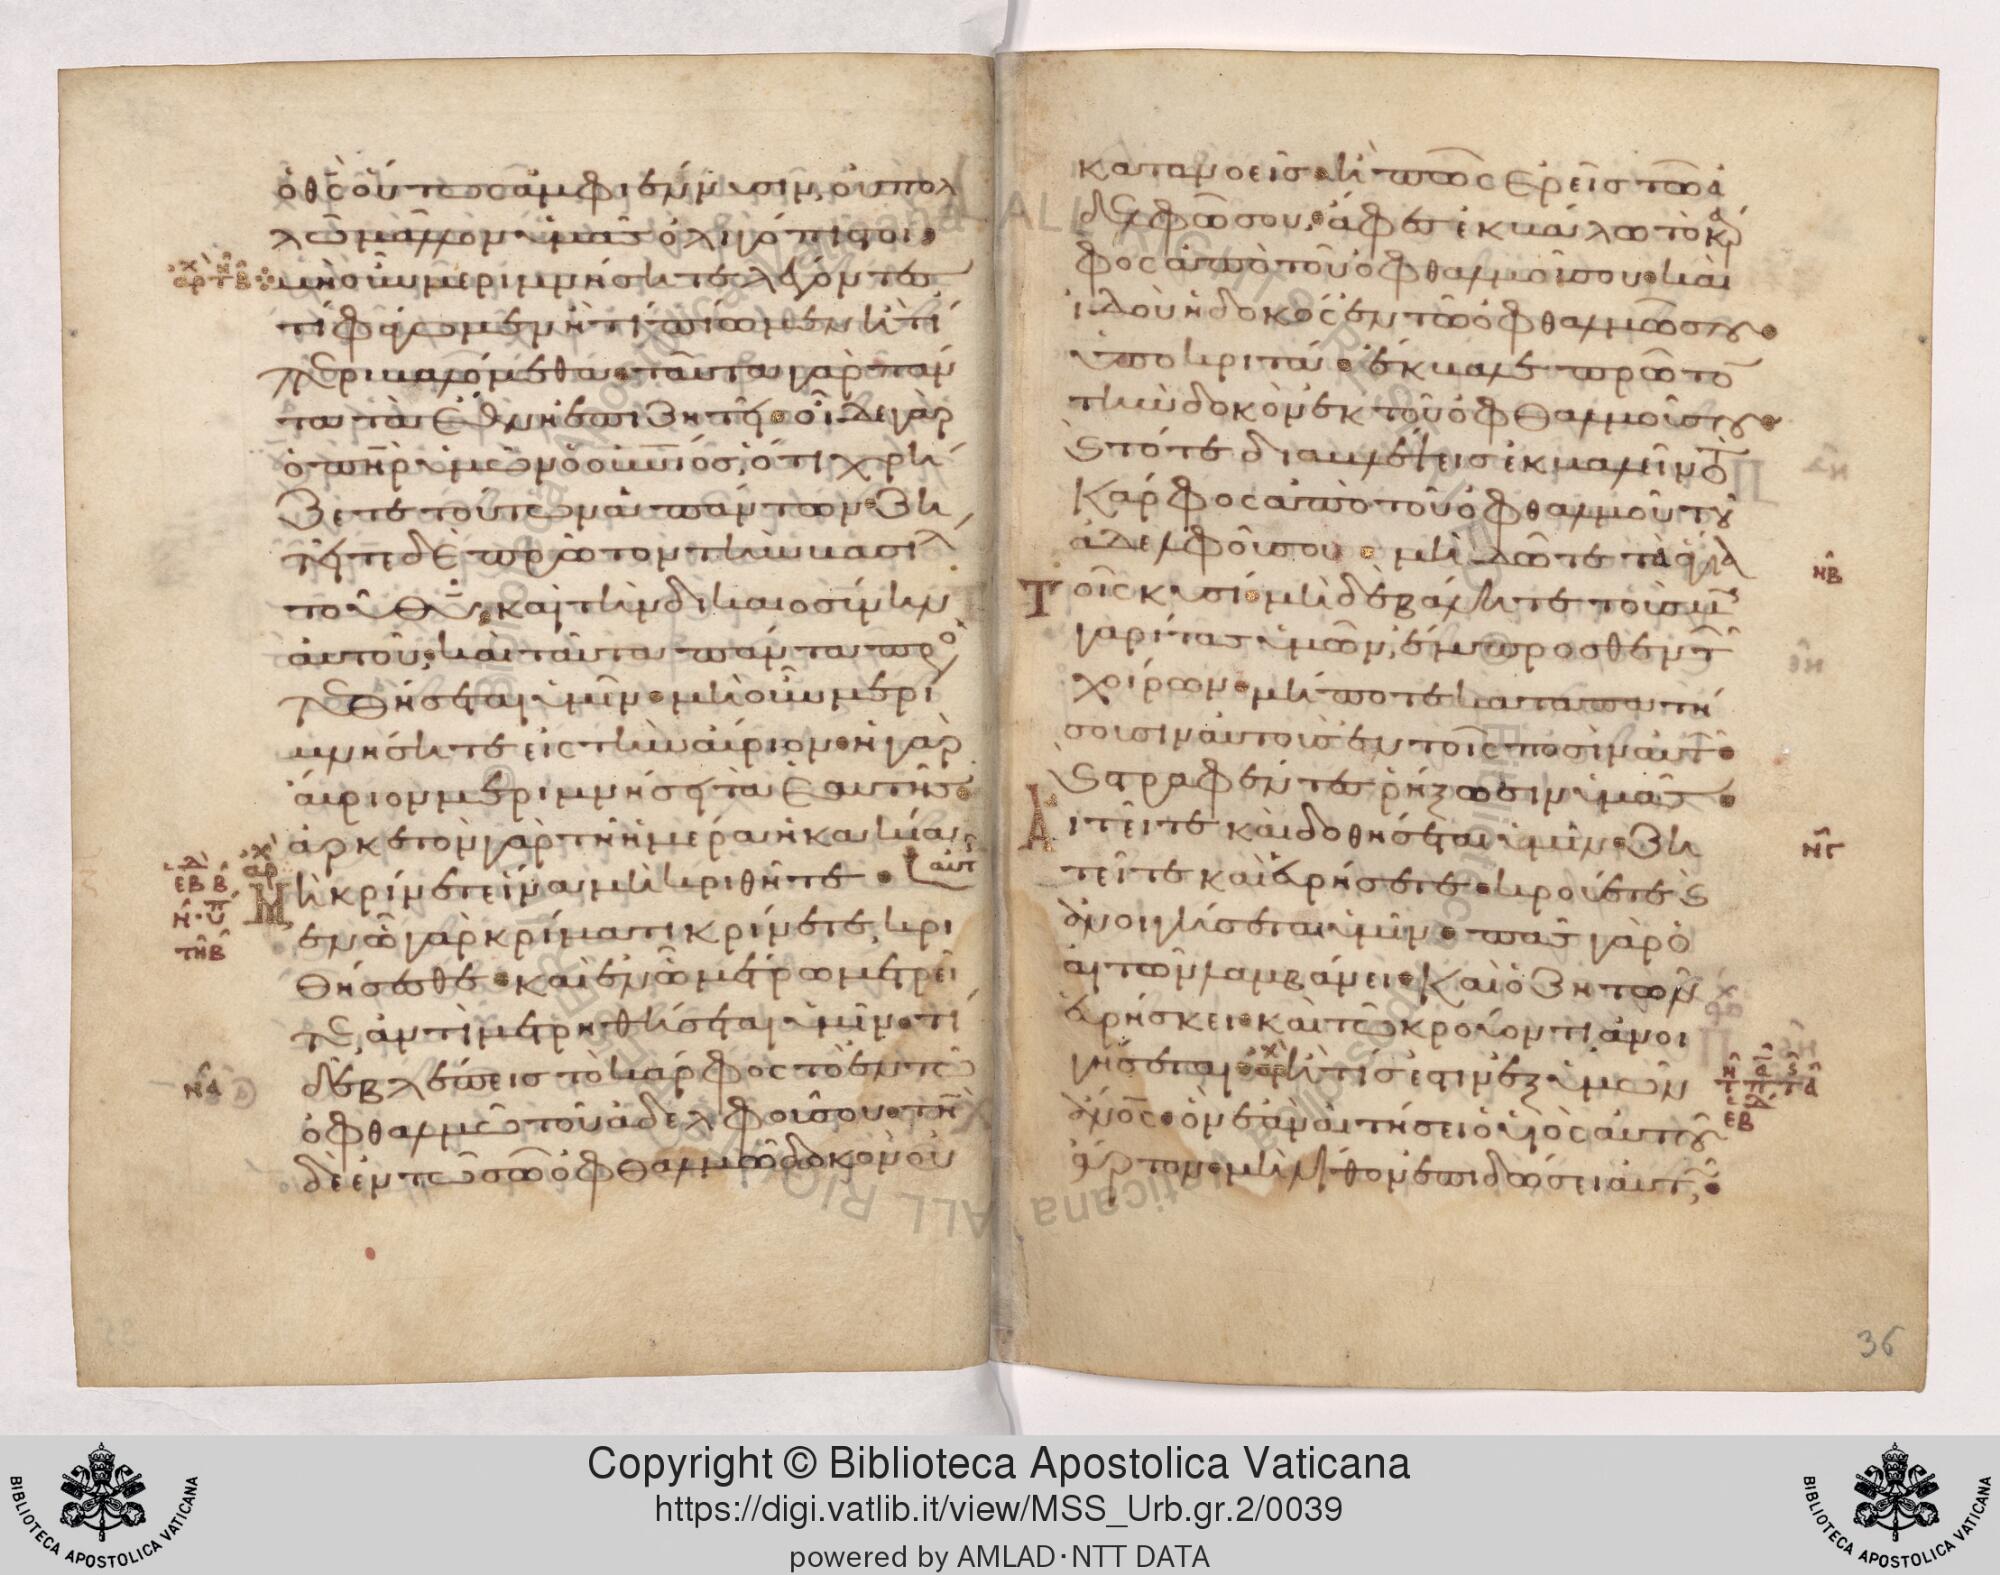 ὁ θ̅ς̅ οὕτως ἀμφιέννυσιν, οὐ πολ
λῶ μᾶλλον ὑμᾶς ὀλιγόπιστοι·
μὴ οὖν μεριμνήσητε λέγοντες
τί φάγωμεν ἢ τί πίωμεν ἢ τί
περιβαλώμεθα· πάντα γὰρ ταῦ
τα τὰ ἔθνη ἐπιζητεῖ· οἶδε γὰρ
ὁ π̅η̅ρ̅ ὑμῶν ὁ οὐ̅ν̅ιος, ὅτι χρή
ζετε τούτων ἁπάντων· ζη
τεῖτε δὲ πρῶτον τὴν βασιλ
τοῦ θ̅υ̅, καὶ τὴν δικαιοσύνην
αὐτοῦ, καὶ ταῦτα πάντα προσ
τεθήσεται ὑμῖν· μὴ οὖν μερι
μνήσητε εἰς τὴν αὔριον· ἡ γὰρ
αὔριον μεριμνήσει τὰ ἑαυτῆς·
ἀρκετὸν γὰρ τῇ ἡμέρᾳ ἡ κακία
αὐτ
Μὴ κρίνετε ἵνα μὴ κριθῆτε·
ἐν ᾧ γὰρ κρίματι κρίνετε, κρι
θήσεσθε· καὶ ἐν ᾧ μέτρω μετρεῖ
τε, ἀντιμετρηθήσεται ὑμῖν· τί
δὲ βλέπεις τὸ κάρφος τὸ ἐν τῶ
ὀφθαλμῶ τοῦ ἀδελφοῦ σου· τὴν
δὲ ἐν τῶ σῶ ὀφθαλμῶ δοκὸν οὐ
κατανοεῖς· ἢ πῶς ἐρεῖς τῶ ἀ
δελφῶ σου, ἄφες ἐκβάλω τὸ κάρ
φος ἀπὸ τοῦ ὀφθαλμοῦ σου· καὶ
ἰδοὺ ἡ δοκὸς ἐν τῶ ὀφθαλμῶ σου·
ὑποκριτά· ἔκβαλε πρῶτον
τὴν δοκὸν ἐκ τοῦ ὀφθαλμοῦ σου·
καὶ τότε διαβλέψεις ἐκβαλεῖν τὸ
κάρφος ἀπὸ τοῦ ὀφθαλμοῦ τοῦ
ἀδελφοῦ σου· μὴ δῶτε τὰ ἅγια
τοῖς κυσί· μὴ δὲ βάλητε τοὺς μαρ
γαρίτας ὑμῶν, ἔμπροσθεν τῶν
χοίρων· μήποτε καταπατή
σουσιν αὐτοὺς ἐν τοῖς ποσὶν αὐτῶν·
καὶ στραφέντες ῥήξωσιν ὑμᾶς·
Αἰτεῖτε καὶ δοθήσεται ὑμῖν· ζη
τεῖτε καὶ εὑρήσετε· κρούετε καὶ
ἀνοιγήσεται ὑμῖν· πᾶς γὰρ ὁ
αἰτῶν λαμβάνει· καὶ ὁ ζητῶν
εὑρήσκει· καὶ τῶ κρούοντι ἀνοι
γήσεται· ἢ τίς ἐστιν ἐξ ὑμῶν
ἄνος· ὃν ἐὰν αἰτήσει ὁ υἱὸς αὐτοῦ
ἄρτον· μὴ λίθον ἐπιδώσει αὐτῶ;
36
Copyright © Biblioteca Apostolica Vaticana
https://digi.vatlib.it/view/MSS_Urb.gr.2/0039
powered by AMLAD·NTT DATA
BIBLIOTECA APOSTOLICA VATICANA
BIBLIOTECA APOSTOLICA VATICANA